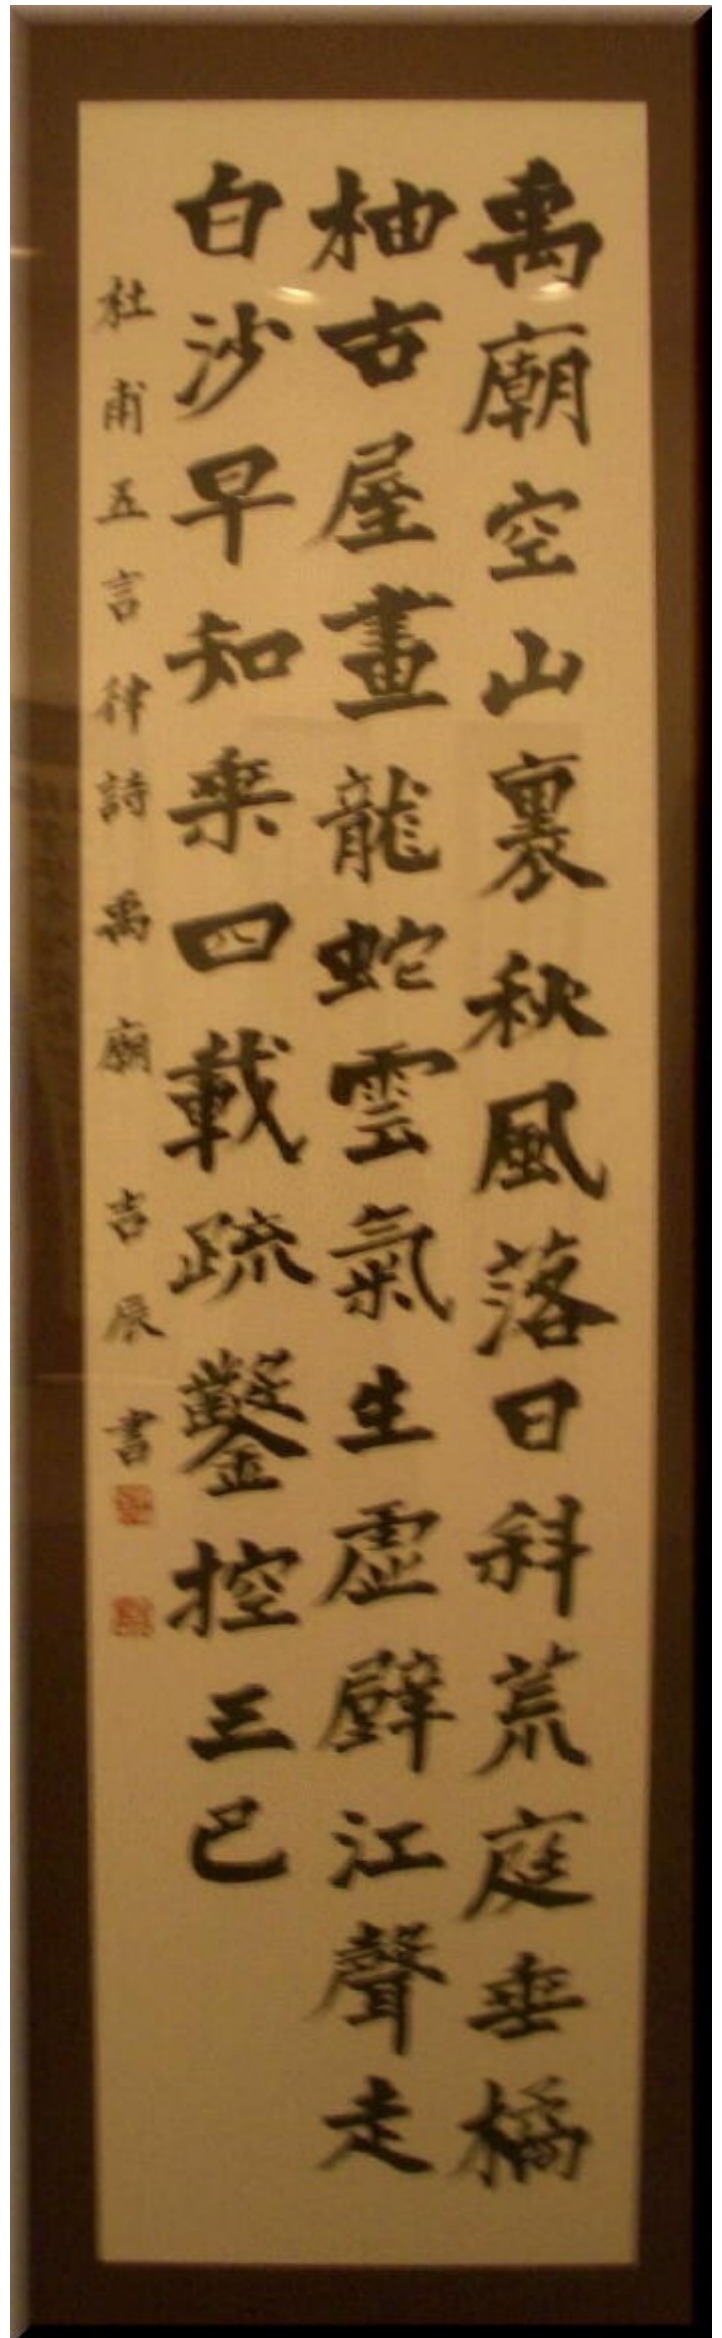 禹廟空山裏秋風落日斜荒庭垂橘
柚古屋畫龍蛇雲氣生虛壁江聲走
白沙早知乘四載疏鑿控三巴
杜甫五言律詩禹廟 吉辰書